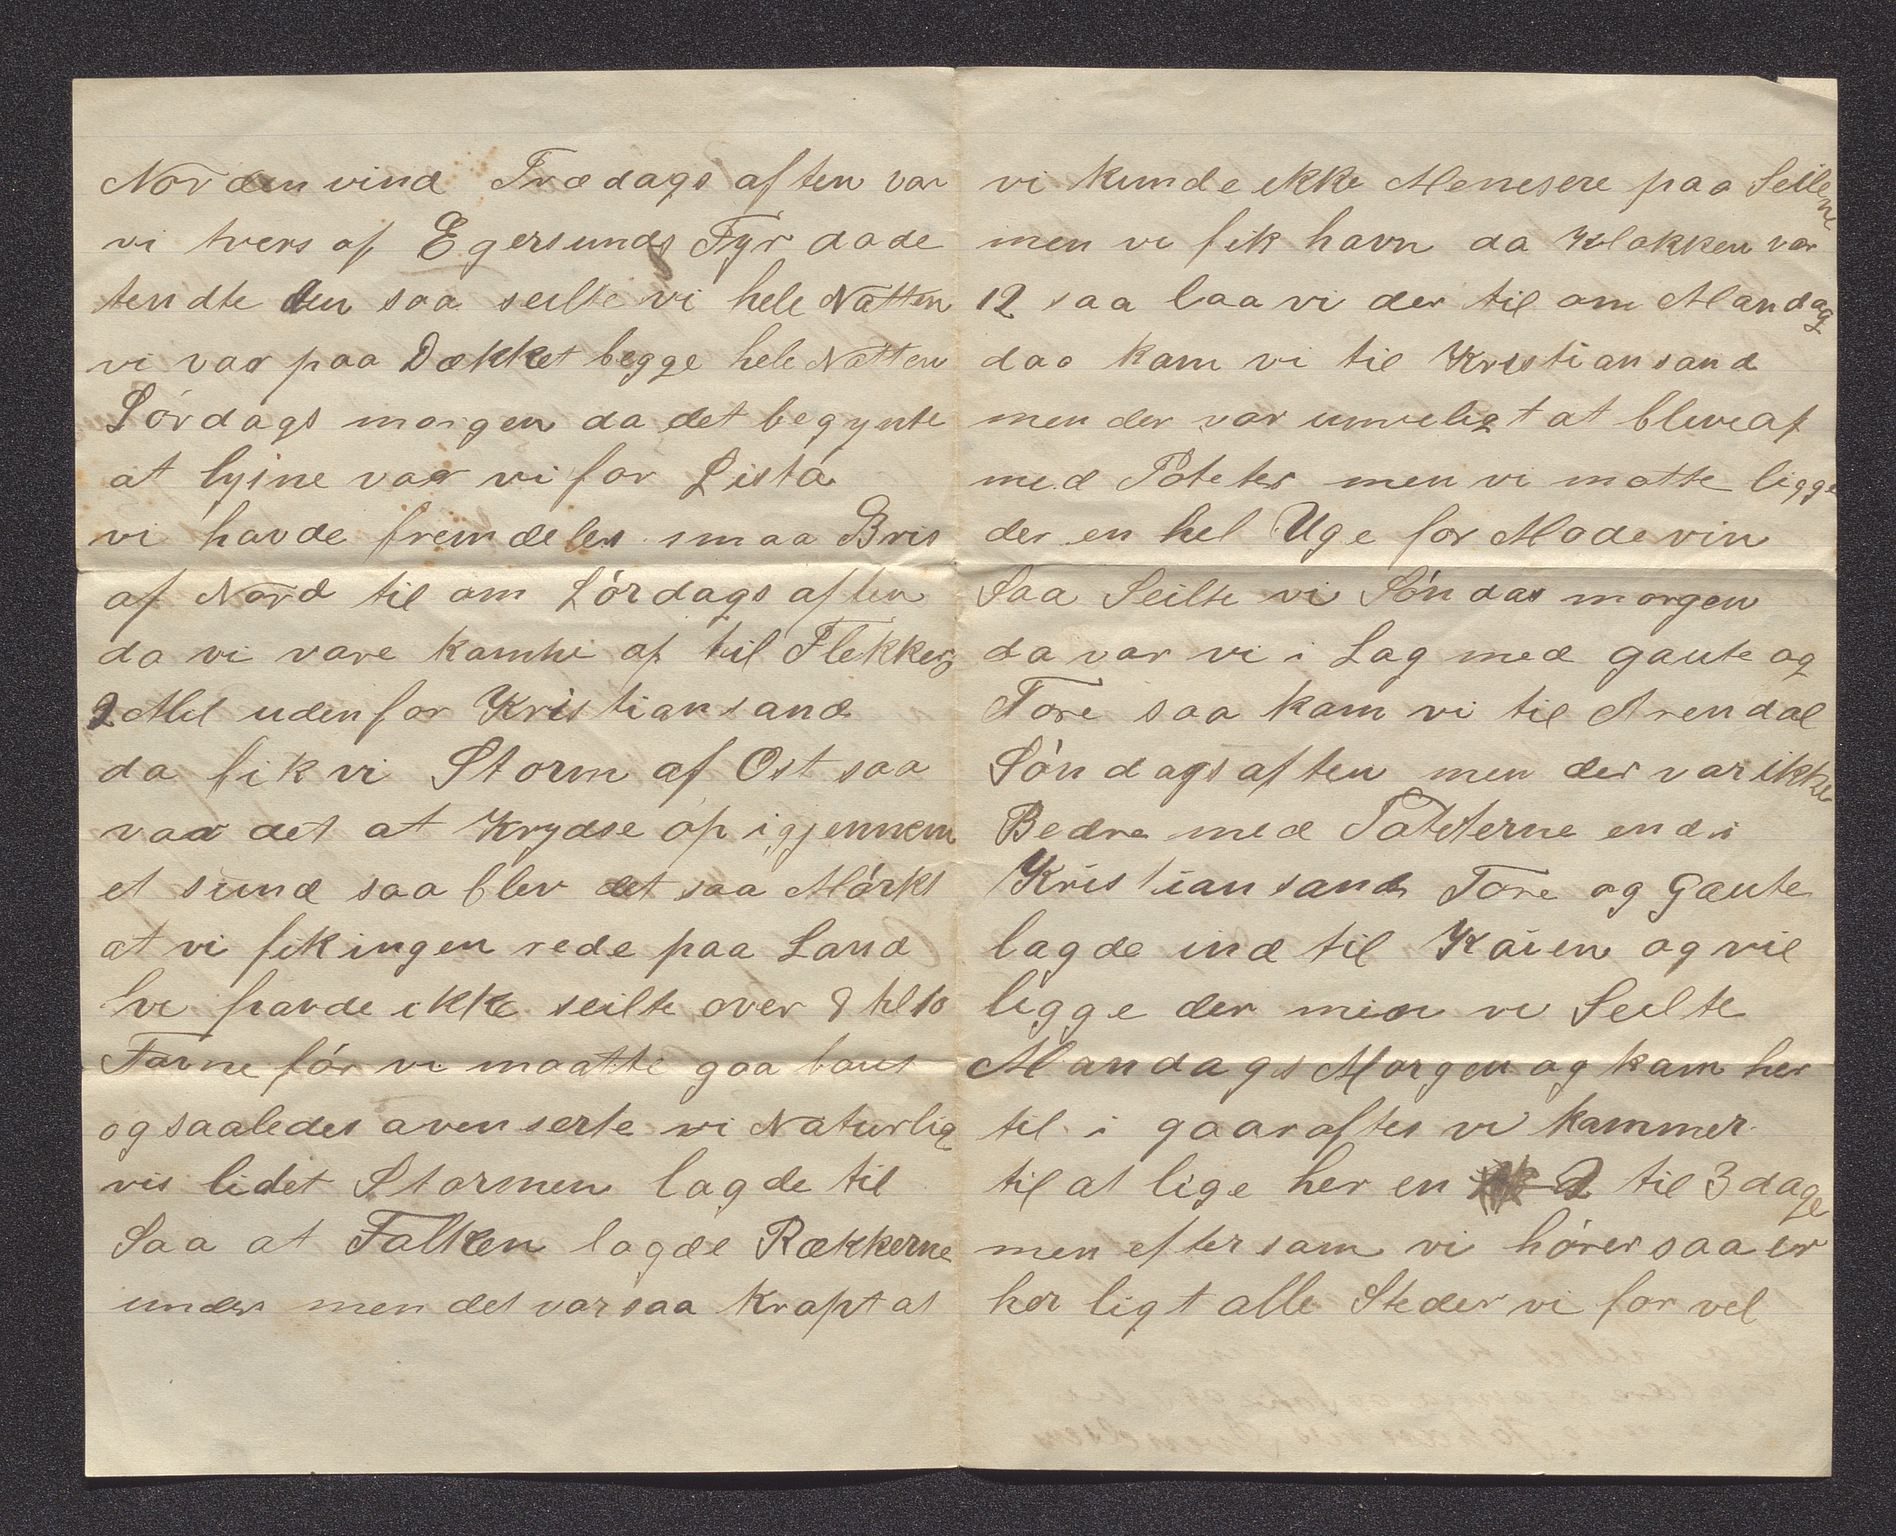 Norden vind Fredags aften var
vi tvers af Egersunds Fyr dade
tendte den saa seilte vi hele Natten
vi var paa Dækket begge hele Natten
Lørdags morgen da det begynte
at lysne var vi for Lista
vi havde fremdeles smaa Bris
af Nord til om Lørdags aften
da vi vare komne af til Flekkerø
2 Mil udenfor Kristiansand
da fik vi Storm af Ost saa
var det at Krydse op igjennem
et sund saa blev det saa Mørkt
at vi fik ingen rede paa Land
vi havde ikke seilte over 8 til 10
Favne før vi maatte gaa baut
og saaledes avenserte vi Naturlig
vis lidet Stormen lagde til
Saa at Falken lagde Rækkerne
under men det var saa krapt at
vi kunde ikke Menesere paa Seilene
men vi fik havn da Klokken var
12 saa laa vi der til om Mandag
daa kam vi til Kristiansand
men der var umueligt at blive af
med Poteter men vi matte ligge
der en hel Uge for Modevin
Saa Seilte vi Søndas morgen
da var vi i Lag med Gaute og
Tore saa kam vi til Arendal
Søndagsaften men der var ikke
Bedre med Poteterne end i
Kristiansand Tore og Gaute
lagde ind til Kaien og vil
ligge der men vi Seilte
Mandags Morgen og kam her
til i gaar aftes vi kammer
til at lige her en 2 til 3 dage
men eftersom vi hører saa er
her ligt alle Steder vi for vel